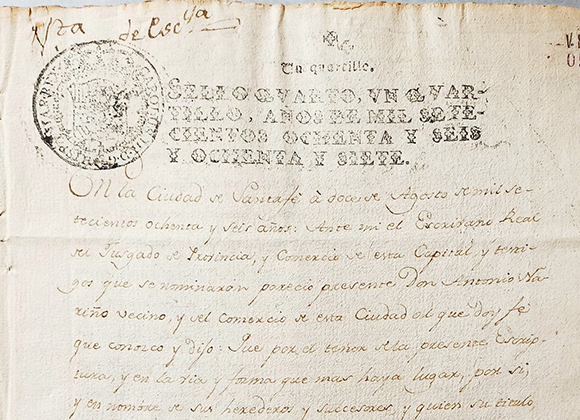 Vta de Escra
Un quartillo.
SELLO QVARTO, VN QVAR-
TILLO, AÑOS DE MIL SETE-
CIENTOS OCHENTA Y SEIS
Y OCHENTA Y SIETE.
En la Ciudad de Santafé à doce de Agosto de mil se-
tecientos ochenta y seis años: Ante mi el Escribano Real
del Jusgado de Provincia, y Comercio de esta Capital, y testi-
gos que se nominarán parecio presente Don Antonio Na-
riño vecino, y del Comercio de esta Ciudad al que doy fé
que conosco y dijo: Que por el tenor de la presente Escrip-
tura, y en la via y forma que mas haya lugar, por si,
y en nombre de sus herederos y successores, y quien su titulo